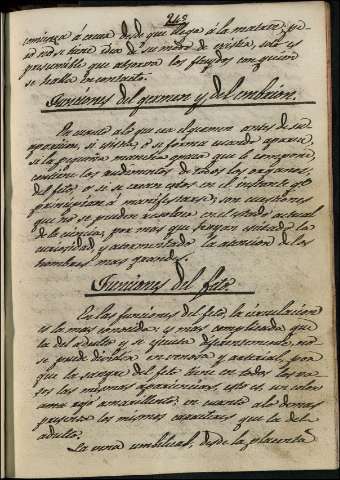 243
comienza á crecer desde que llega á la matriz; pe-
ro no se tiene idea de su modo de existir, solo es
presumible que absorva los fluydos con quien
se halla en contacto.
Funciones del germen y del embrion.
En cuanto á lo que sea el germen antes de su
aparicion, si existe, ó se forma cuando aparece,
si la pequeña mancha opaca que le compone,
contiene los rudimentos de todos los organos,
del feto, ó si se crean estos en el instante qe
principian á manifestarse; son cuestiones
que no se pueden resolver en el estado actual
de la ciencia, por mas que hayan exitado la
curiosidad y atormentado la atencion de los
hombres mas grandes.
Funciones del feto.
En las funciones del feto, la circulacion
es la mas conocida, y mas complicada que
la del adulto y se ejecuta diferentemente, no
se puede dividir en venosa y arterial, por
que la sangre del feto tiene en todos los va-
sos las mismas apariencias, esto es, un color
rojo amarillento: en cuanto á lo demas
presenta los mismos caracteres que la del
adulto.
La vena umbilical, desde la placenta